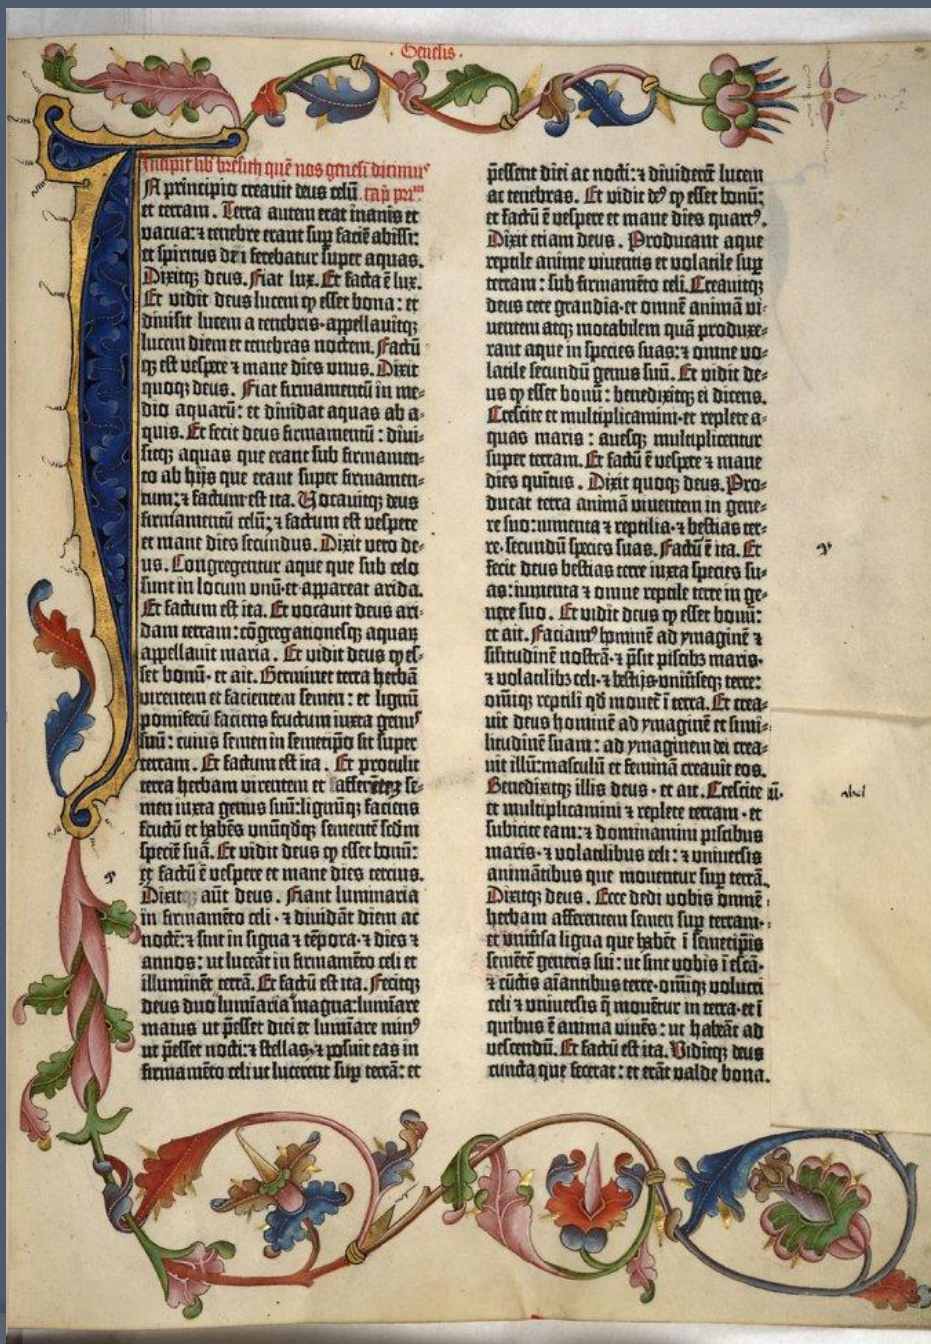 Genesis.
Incipit lib bresith quē nos genesi dicimꝰ
IN principio creavit deus celū cap pꝛīm
et terram. Terra autem erat inanis et
vacua: ⁊ tenebre erant sup faciē abissi:
et spiritus dn̄i ferebatur super aquas.
Dixitqꝫ deus. Fiat lux. Et facta ē lux.
Et vidit deus lucem ꝙ esset bona: et
divisit lucem a tenebris· appellavitqꝫ
lucem diem et tenebras noctem. Factū
qꝫ est vespere ⁊ mane dies unus. Dixit
quoqꝫ deus. Fiat firmamentū in me-
dio aquarū: et dividat aquas ab a-
quis. Et fecit deus firmamentū: divi-
sitqꝫ aquas que erant sub firmamen-
to ab hijs que erant super firmamen-
tum: ⁊ factum est ita. Vocavitqꝫ deus
firmamentū celū: ⁊ factum est vespere
et mane dies secundus. Dixit vero de-
us. Congregentur aque que sub celo
sunt in locum unū et appareat arida.
Et factum est ita. Et vocavit deus ari-
dam terram: cōgregationesqꝫ aquaꝝ
appellavit maria. Et vidit deus ꝙ es-
set bonū· et ait. Germinet terra herbā
virentem et facientem semen: et lignū
pomiferū faciens fructum iuxta genus
suū: cuius semen in semetipō sit super
terram. Et factum est ita. Et protulit
terra herbam virentem et afferētez se-
men iuxta genus suū: lignūqꝫ faciens
fructū et habēs unūqdqꝫ sementē scdm
speciē suā. Et vidit deus ꝙ esset bonū:
et factū ē vespere et mane dies tercius.
Dixit aūt deus. Fiant luminaria
in firmamēto celi· ⁊ dividāt diem ac
noctē: ⁊ sint in signa ⁊ tēpora· ⁊ dies ⁊
annos: ut luceāt in firmamēto celi et
illuminēt terrā. Et factū est ita. Fecitqꝫ
deus duo luminaria magna: lumiāre
maius ut p̄esset diei et lumiāre minꝰ
ut p̄esset nocti: ⁊ stellas· ⁊ posuit eas in
firmamēto celi ut lucerent sup terrā: et
p̄essent diei ac nocti: ⁊ dividerēt lucem
ac tenebras. Et vidit deꝰ ꝙ esset bonū:
et factū ē vespere et mane dies quartꝰ.
Dixit etiam deus. Producant aque
reptile anime viventis et volatile sup
terram: sub firmamēto celi. Creavitqꝫ
deus cete grandia· et omnē animā vi-
ventem atqꝫ motabilem quā produxe-
rant aque in species suas: ⁊ omne vo-
latile secundū genus suū. Et vidit de-
us ꝙ esset bonū: benedixitqꝫ ei dicens.
Crescite et multiplicamini· et replete a-
quas maris: avesqꝫ multiplicentur
super terram. Et factū ē vespere ⁊ mane
dies quītus. Dixit quoqꝫ deus. Pro-
ducat terra animā viventem in gene-
re suo: iumenta ⁊ reptilia· ⁊ bestias ter-
re· secundū species suas. Factū ē ita. Et
fecit deus bestias terre iuxta species su-
as: iumenta ⁊ omne reptile terre in ge-
nere suo. Et vidit deus ꝙ esset bonū:
et ait. Faciamꝰ hominē ad ymaginē ⁊
silitudinē nostrā· ⁊ p̄sit piscibꝫ maris·
⁊ volatilibꝫ celi· ⁊ bestijs univ̄seqꝫ terre:
omīqꝫ reptili qd movet ī terra. Et crea-
vit deus hominē ad ymaginē et simi-
litudinē suam: ad ymaginem dei crea-
vit illū: masculū et feminā creavit eos.
Benedixitqꝫ illis deus· et ait. Crescite
et multiplicamini ⁊ replete terram· et
subicite eam: ⁊ dominamini piscibus
maris· ⁊ volatilibus celi: ⁊ universis
animātibus que moventur sup terrā.
Dixitqꝫ deus. Ecce dedi vobis omnē
herbam afferentem semen sup terram·
et univ̄sa ligna que habēt ī semetipis
semētē generis sui: ut sint vobis ī escā·
⁊ cūctis aīantibus terre· omīqꝫ volucri
celi ⁊ universis q̄ movētur in terra· et ī
quibus ē anima vivēs: ut habeāt ad
vescendū. Et factū est ita. Viditqꝫ deus
cuncta que fecerat: et erāt valde bona.